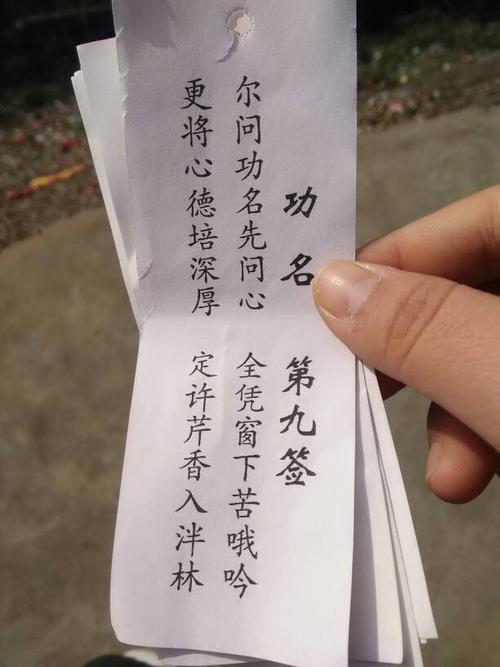 功名 第九签
尔问功名先问心 全凭窗下苦哦吟
更将心德培深厚 定许芹香入泮林